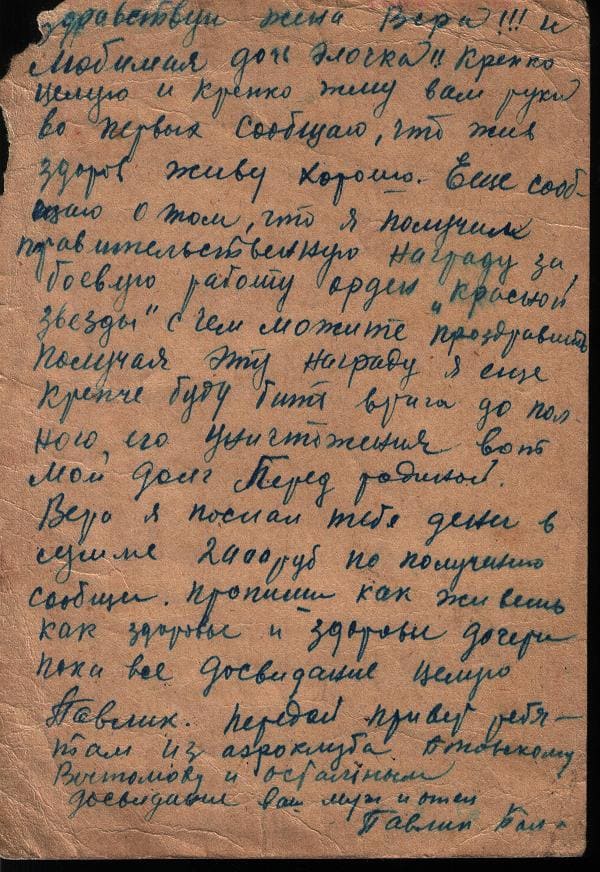 здравствуй жена Вера!!! и
Любимая дочь Элочка!! Крепко
целую и крепко жму вам руки
во первых сообщаю, что жив
здоров живу хорошо. Еще сооб-
щаю о том, что я получил
правительственную награду за
боевую работу орден „Красной
звезды" с чем можите проздравить
получая эту награду я еще
крепче буду бить врага до пол-
ного, его уничтожения вот
мой долг Перед родиной.
Вера я послал тебе денег в
сумме 2400 руб по получению
сообщи. пропиши как живешь
как здоровье и здоровье дочери
пока все досвидание целую
Павлик. передай привет ребя-
там из аэроклуба
и остальным
досвидание ваш муж и отец
Павлик